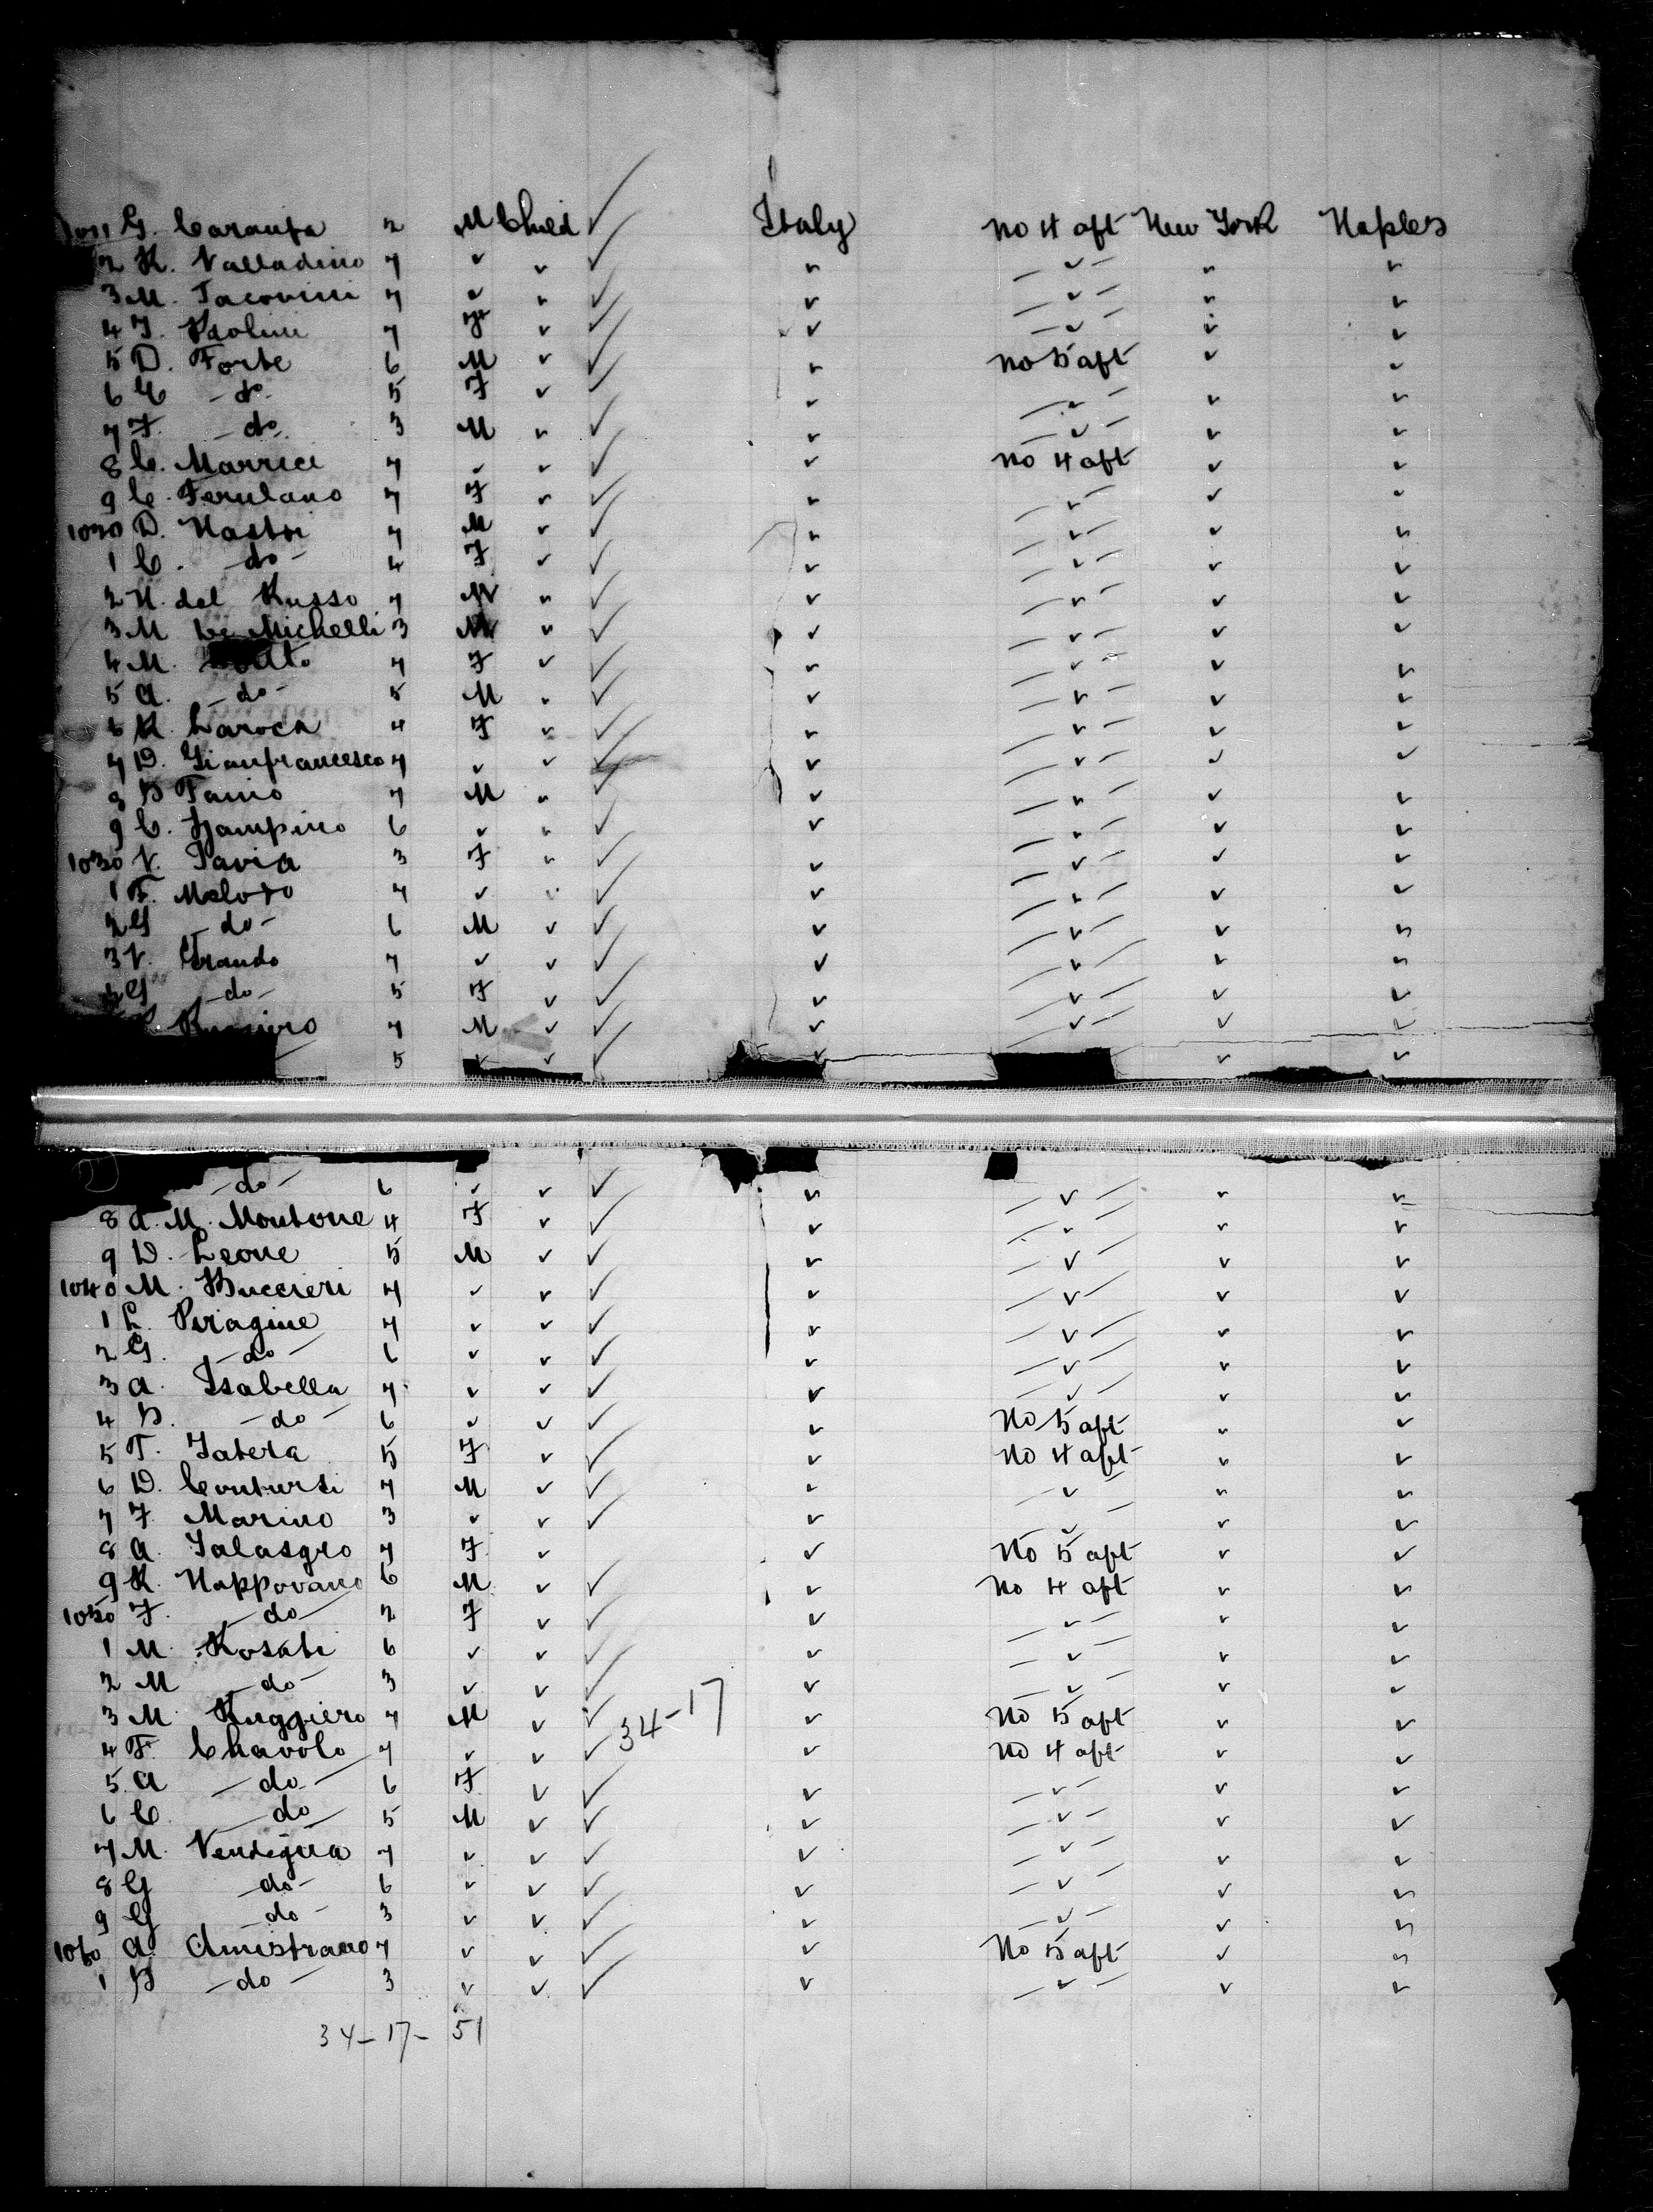 1011 G. Caraufa 2 M Child ✓ Italy No 4 aft New York Naples
2 R. Valladino 7 " " ✓ " " " "
3 M. Iacovini 7 " " ✓ " " " "
4 F. Paolini 7 F " ✓ " " " "
5 D. Forte 6 M " ✓ " No 5 aft " "
6 C - do - 5 F " ✓ " " " "
7 F. - do - 3 M " ✓ " " " "
8 C. Marrici 7 " " ✓ " No 4 aft " "
9 C. Ferulano 7 F " ✓ " " " "
1020 D. Nastri 7 M " ✓ " " " "
1 C. - do - 4 F " ✓ " " " "
2 N. del Russo 7 M " ✓ " " " "
3 M De Michelli 3 M " ✓ " " " "
4 M. 7 F " ✓ " " " "
5 A. - do - 5 M " ✓ " " " "
6 R. Laroca 4 F " ✓ " " " "
7 D. Gianfrancesco 7 " " ✓ " " " "
8 B Famo 7 M " ✓ " " " "
9 C. Zampino 6 " " ✓ " " " "
1030 V. Pavia 3 F " ✓ " " " "
1 F. Moloro 7 " " ✓ " " " "
2 G - do - 6 M " ✓ " " " "
3 V. Grando 7 " " ✓ " " " "
4 G - do - 5 F " ✓ " " " "
7 M " ✓ " " " "
5 " " ✓ " " "
- do - 6 " " ✓ " " " "
8 A. M. Montone 4 F " ✓ " " " "
9 D. Leone 5 M " ✓ " " " "
1040 M. Buccieri 7 " " ✓ " " " "
1 L. Piragine 7 " " ✓ " " " "
2 G. - do - 6 " " ✓ " " " "
3 A. Isabella 7 " " ✓ " " " "
4 B. - do - 6 " " ✓ " No 5 aft " "
5 T. Iatera 5 F " ✓ " No 4 aft " "
6 D. Contursi 7 M " ✓ " " " "
7 F. Marino 3 " " ✓ " " " "
8 A. Salasgro 7 F " " No 5 aft " "
9 R. Nappovano 6 M " ✓ " No 4 aft " "
1050 F. - do - 2 F " ✓ " " " "
1 M. Rosati 6 " " ✓ " " " "
2 M - do - 3 " " ✓ " " " "
3 M. Ruggiero 7 M " ✓ 34-17 " No 5 aft " "
4 F. Chavolo 7 " " ✓ " No 4 aft " "
5 A - do - 6 F " ✓ " " " "
6 C. - do - 5 M " ✓ " " " "
7 M. Vendegna 7 " " ✓ " " " "
8 G - do - 6 " " ✓ " " " "
9 G - do - 3 " " ✓ " " " "
1060 A. Amistrano 7 " " ✓ " No 5 aft " "
1 B - do - 3 " " ✓ " " " "
34-17- 51